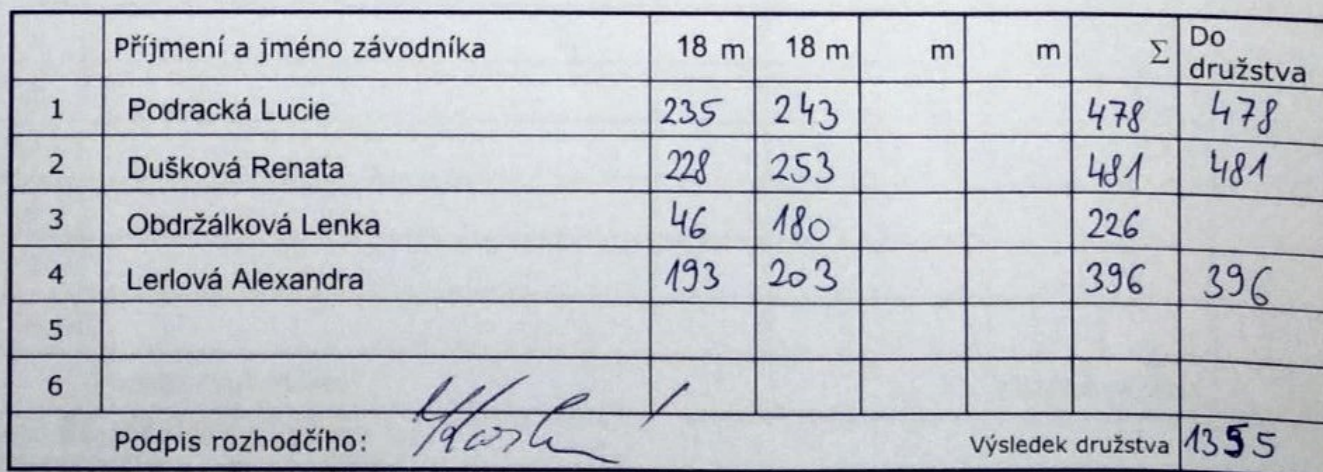 Příjmení a jméno závodníka 18 m 18 m m m Σ Do družstva
1 Podracká Lucie 235 243 478 478
2 Dušková Renata 228 253 481 481
3 Obdržálková Lenka 46 180 226
4 Lerlová Alexandra 193 203 396 396
5
6
Podpis rozhodčího: Výsledek družstva 1355